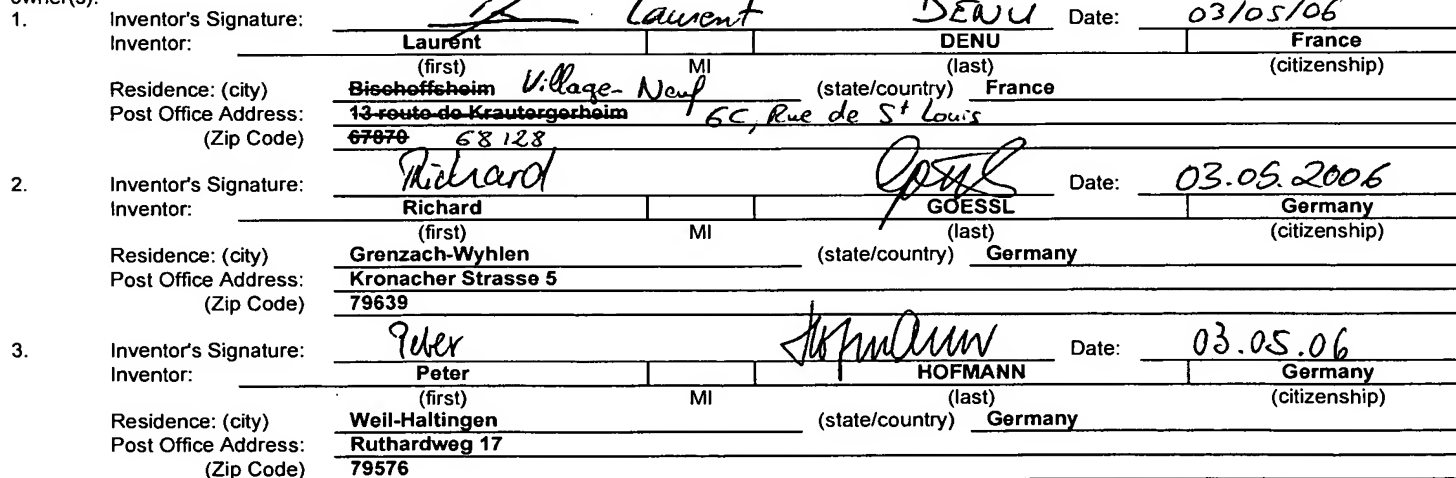 owner(s):
1. Inventor's Signature: Laurent DENU Date: 03/05/06
Inventor: Laurent DENU France
(first) MI (last) (citizenship)
Residence: (city) Bischoffsheim Village-Neuf (state/country) France
Post Office Address: 13 route de Krautergerheim 6C, Rue de St Louis
(Zip Code) 67870 68128
2. Inventor's Signature: Richard Goessl Date: 03.05.2006
Inventor: Richard GOESSL Germany
(first) MI (last) (citizenship)
Residence: (city) Grenzach-Wyhlen (state/country) Germany
Post Office Address: Kronacher Strasse 5
(Zip Code) 79639
3. Inventor's Signature: Peter Hofmann Date: 03.05.06
Inventor: Peter HOFMANN Germany
(first) MI (last) (citizenship)
Residence: (city) Weil-Haltingen (state/country) Germany
Post Office Address: Ruthardweg 17
(Zip Code) 79576